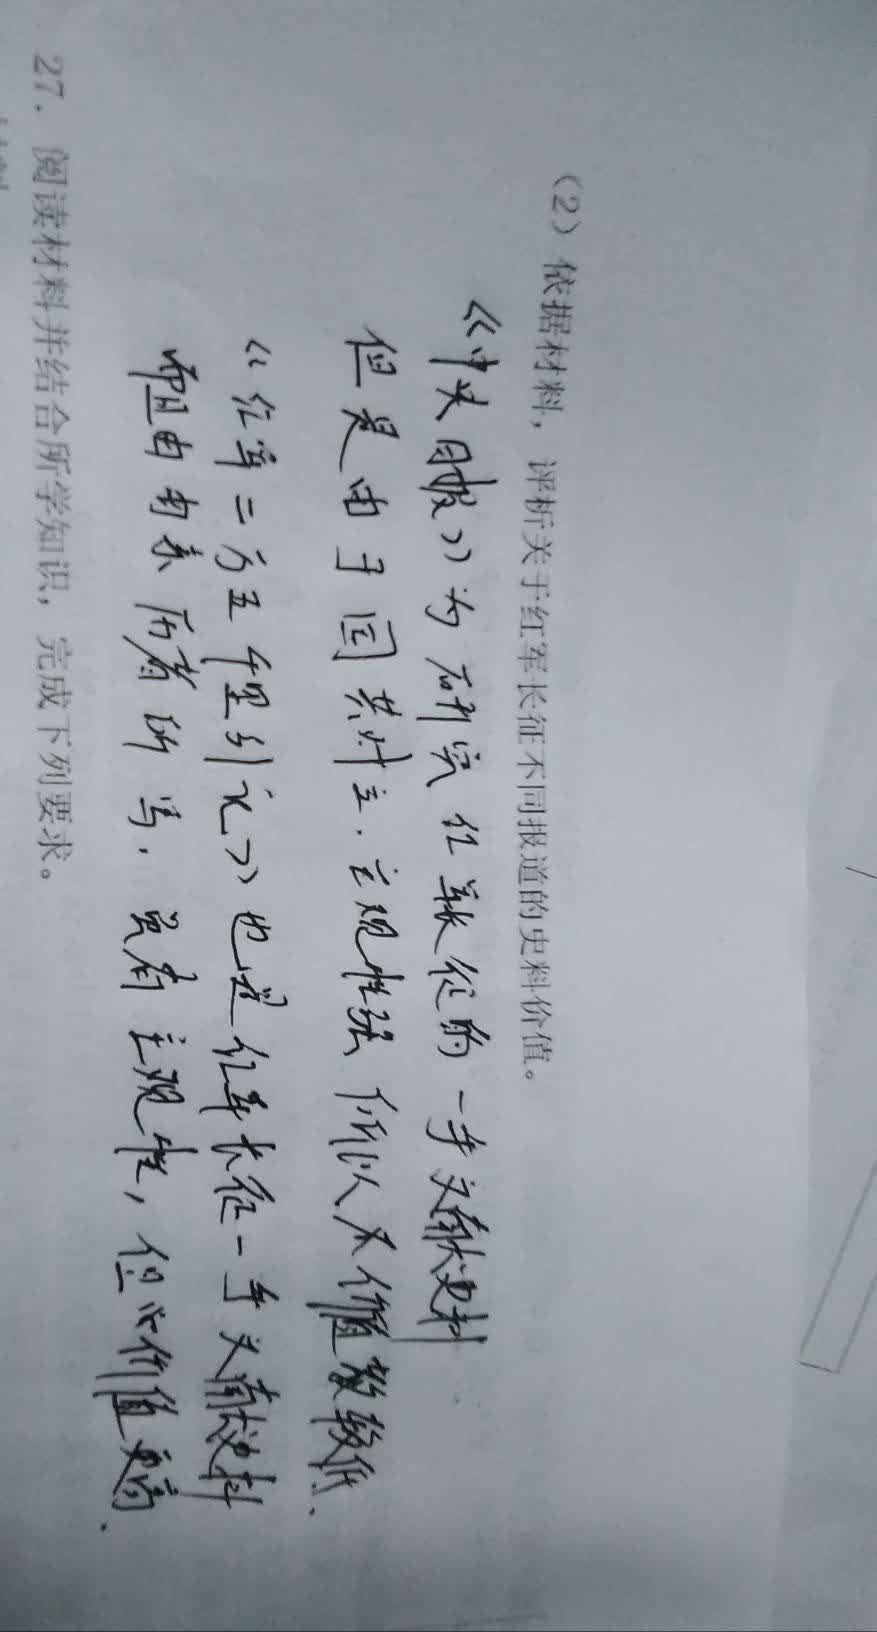 (2) 依据材料，评析关于红军长征不同报道的史料价值。
《中央日报》为研究红军长征的一手文献史料
但是由于国共对立．主观性强 所以 价值 较低．
《红军二万五千里引》也是红军长征一手文献史料
而且由 亲历者所写．虽有主观性，但 价值更高．
27. 阅读材料并结合所学知识，完成下列要求。